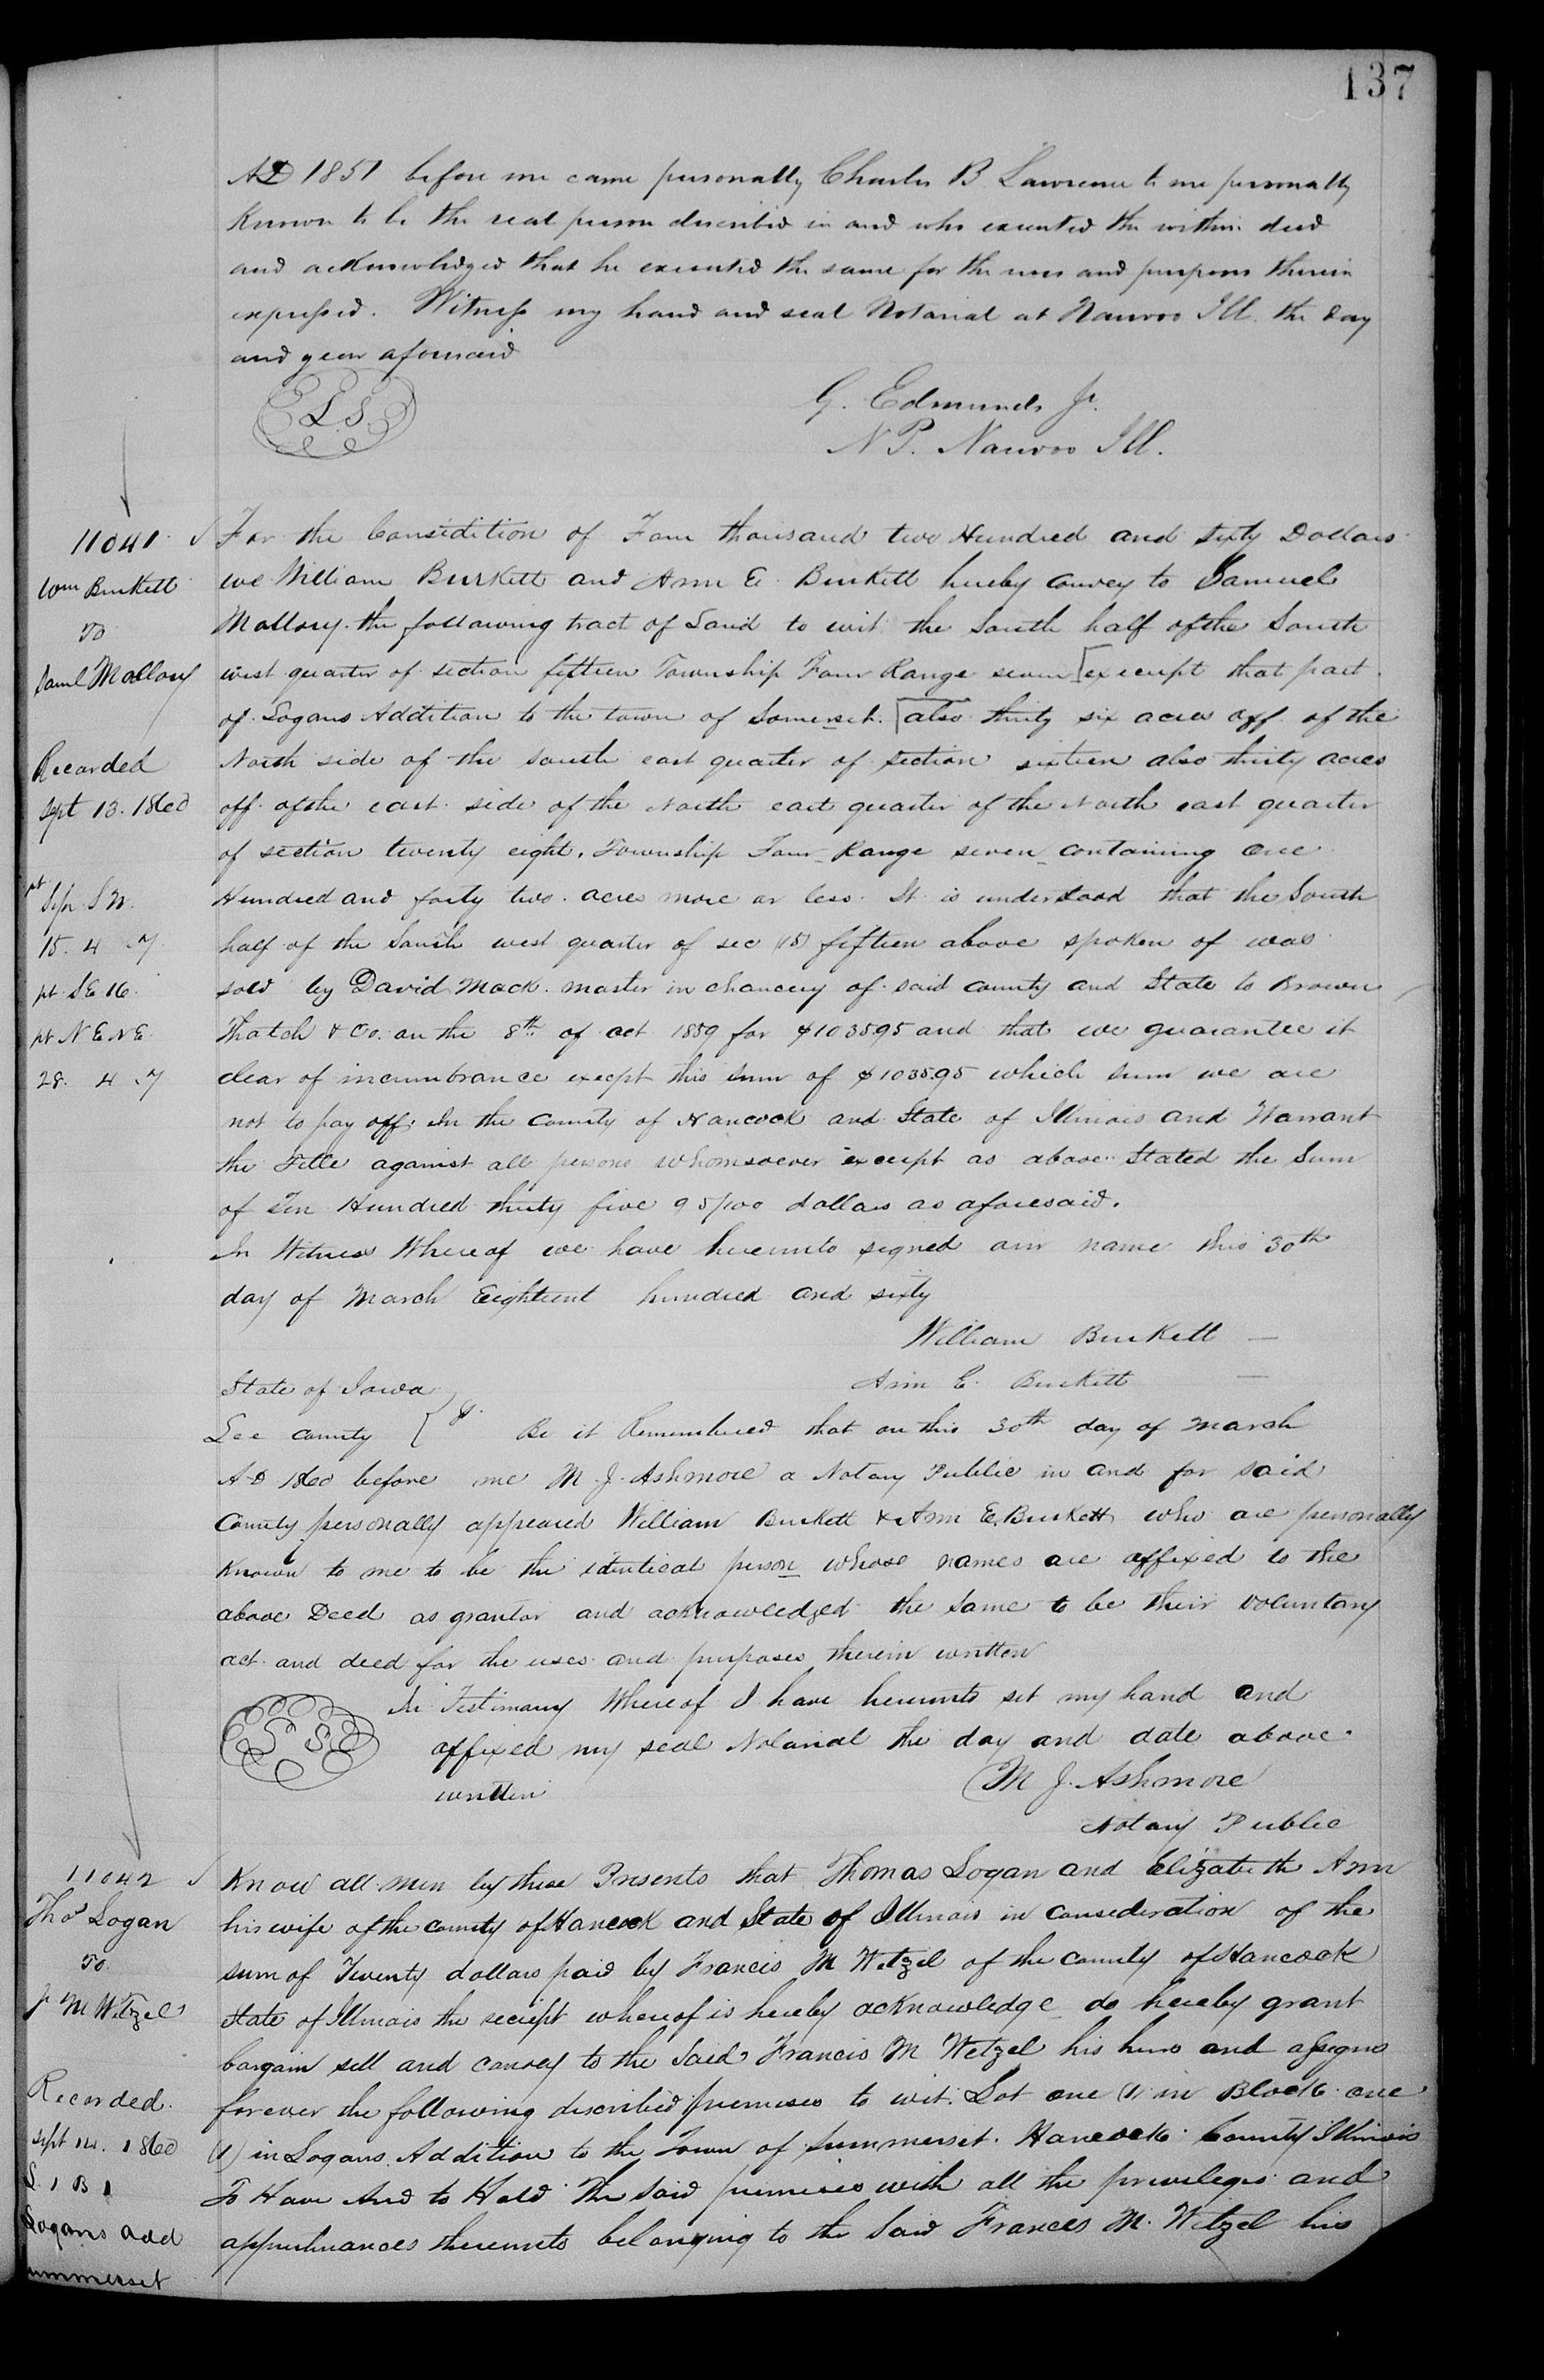 137
AD 1851 before me came personally Charles B Lawrence to me personally
Known to be the real person described in and who executed the within deed
and acknowledged that he executed the same for the uses and purposes therein
expressed. Witness my hand and seal Notarial at Nauvoo Ill. the day
and year aforesaid
L S
G. Edmunds Jr.
N P. Nauvoo Ill.
11041
Wm Burkett
To
Saml Mallory
Recorded
Sept 13. 1860
pt
S½ S W.
15. 4 .7
pt S E 16.
pt N E N E.
28. 4 .7
For the Considition of Four thousand two Hundred and sixty Dollars
we William Burkett and Ann E. Burkett hereby convey to Samuel
Mallory. the following tract of Land to wit the South half of the South
west quarter of section fifteen Township Four Range seven [exceept that part
of Logans Addition to the town of Somerset. [also thirty six acres off of the
North side of the South east quarter of section sixteen also thirty acres
off of the east side of the North east quarter of the North east quarter
of section twenty eight. Township Four Range seven containing one
Hundred and forty two acres more or less. It is understood that the South
half of the South west quarter of sec (15) fifteen above spoken of was
sold by David Mack. master in chancery of said county and State to Brown
Thatch & Co. on the 8th of oct 1859 for $1035.95 and that we guarantee it
clear of incumbrance except this sum of $1035.95 which sum we are
not to pay off. In the County of Hancock and State of Illinois and Warrant
the Title against all persons whomsoever exceept as above Stated the Sum
of Ten Hundred thirty five 95/100 dollars as aforesaid.
In Witness Whereof we have hereunto signed our name this 30th
day of March Eighteent hundred and sixty
William Burkett
Ann E. Burkett
State of Iowa
Lee county } ss. Be it Remembered that on this 30th day of March
A D 1860 before me M. J. Ashmore a Notary Public in and for said
County personally appeared William Burkett & Ann E. Burkett who are personally
Known to me to be the identical person whose names are affixed to the
above Deed as grantor and acknowledged the same to be their voluntary
act and deed for the uses and purposes therein written
L S
In Testimony Whereof I have hereunto set my hand and
affixed my seal Notarial the day and date above
written
M J. Ashmore
Notary Public
11042
Thos Logan
To
F M Wetzel
Recorded.
Sept 14. 1860
L 1 B 1
Logans add
Summerset
Know all men by these Presents that Thomas Logan and Elizabeth Ann
his wife of the county of Hancock and State of Illinois in consideration of the
sum of Twenty dollars paid by Francis M Wetzel of the County of Hancock
State of Illinois the reciept whereof is hereby acknowledge do hereby grant
bargain sell and convey to the Said Francis M Wetzel his heirs and assigns
forever the following discribed premises to wit. Lot one (1) in Block one
(1) in Logans Addition to the Town of Summerset. Hancock County Illinois
To Have And to Hold The Said premises with all the privileges and
appurtunances thereunto belonging to the Said Frances M. Wetzel his